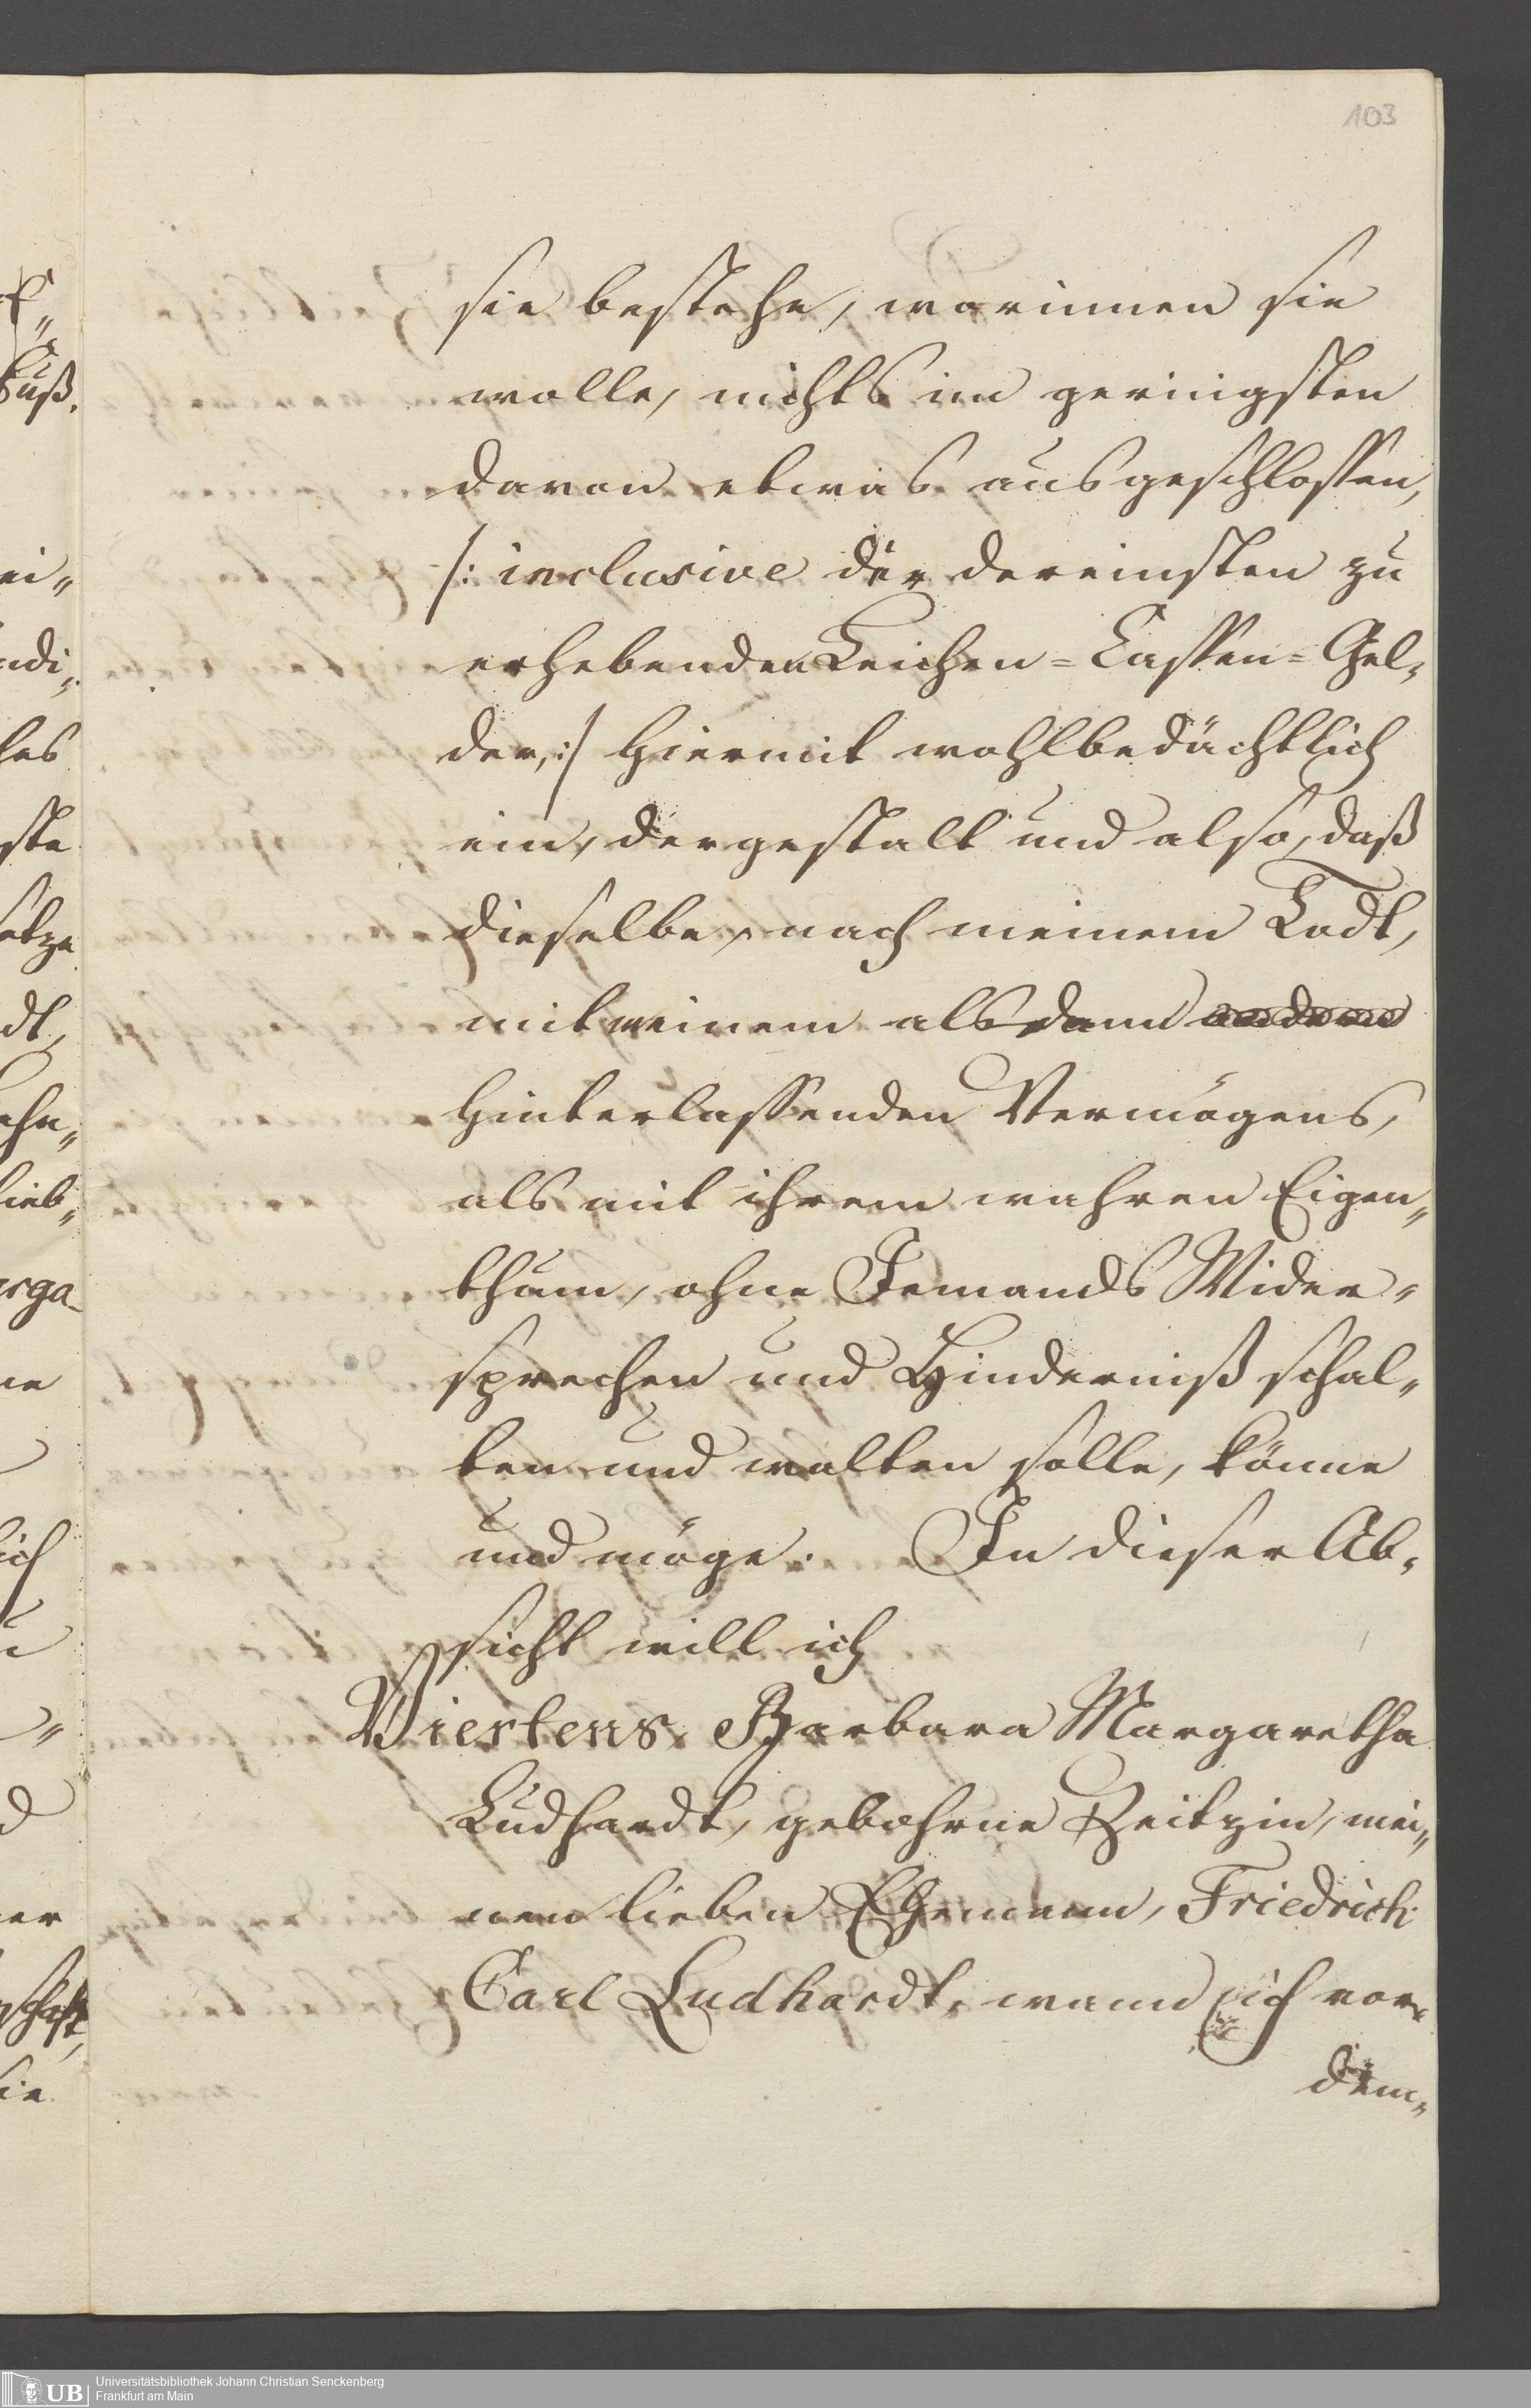 103
sie bestehe, worinnen sie
wolle, nichts im geringsten
davon etwas ausgeschlossen,
/: inclusive der dereinsten zu
erhebenden Leichen=Cassen=Gel„
der, :/ hiermit wohlbedächtlich
ein, dergestalt und also, daß
dieselbe, nach meinem Todt,
mit meinem alsdann
hinterlassenden Vermögens,
als mit ihrem wahren Eigen„
thum, ohne Jemands Wider„
sprechen und Hinderniß schal„
ten und walten solle, könne
und möge. In dieser Ab„
sicht will ich
Viertens Barbara Margaretha
Ludhardt, gebohrne Zeitzin, mei„
nen lieben Ehemann, Friedrich
Carl Ludhardt, wann ich vor„
dem„
UB
Universitätsbibliothek Johann Christian Senckenberg
Frankfurt am Main